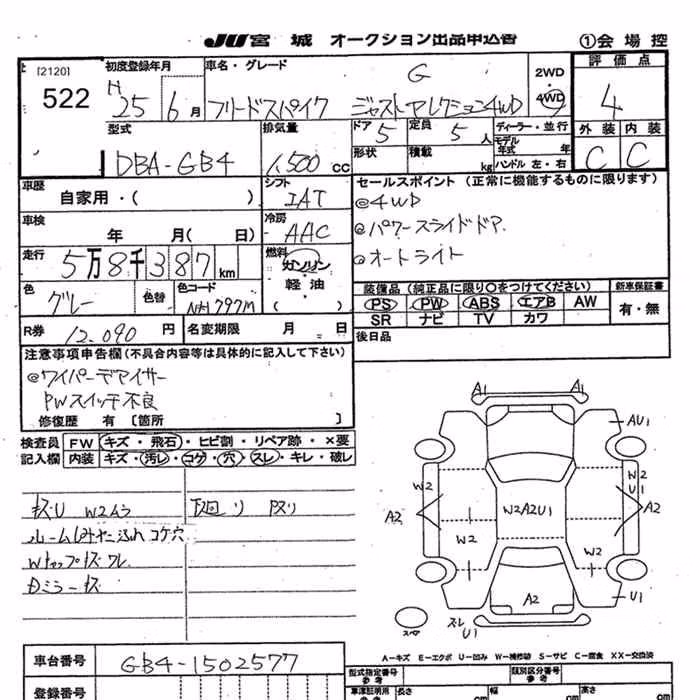 JU宮城 オークション出品申込書 ①会場控
[2120]
522
初度登録年月 車名・グレード
H25年6月 フリードスパイク G ジャストセレクション4WD
2WD
4WD
評価点
4
外装 内装
C C
型式 排気量 ドア 定員 ディーラー・並行
DBA-GB4 1,500CC 5 5人
モデル年式 年
形状 積載 kg ハンドル 左・右
車歴 シフト
自家用・( ) IAT
車検 冷房
年 月( 日) AAC
走行 燃料
5万8千387km ガソリン・軽油
( )
色 色替 色コード
グレー NH797M
R券 12,090円 名変期限 月 日
セールスポイント (正常に機能するものに限ります)
@4WD
@パワースライドドア
@オートライト
装備品(純正品に限り○をつけてください) 新車保証書
PS PW ABS エアB AW 有・無
SR ナビ TV カワ
後日品
注意事項申告欄(不具合内容等は具体的に記入して下さい)
@ワイパーデアイサー
PWスイッチ不良
修復歴 有 [箇所 ]
検査員 FW キズ・飛石・ヒビ割・リペア跡・×要
記入欄 内装 キズ・汚レ・コゲ・穴・スレ・キレ・破レ
キズU W2ムラ
ルームしみ 込み コゲ穴
Wトップキズ ワレ
Dミラーキズ
A1 A1
AU1
W2 W2
U1
A2 W2A2U1 A2
W2 W2
A2
U1
スペア
スレ
U1
A-キズ E-エクボ U-凹み W-補修跡 S-サビ C-腐食 XX-交換済
車台番号 GB4-1502577
登録番号
型式指定番号 参考 類別区分番号 参考
車庫証明用 参考 長さ cm 幅 cm 高さ cm